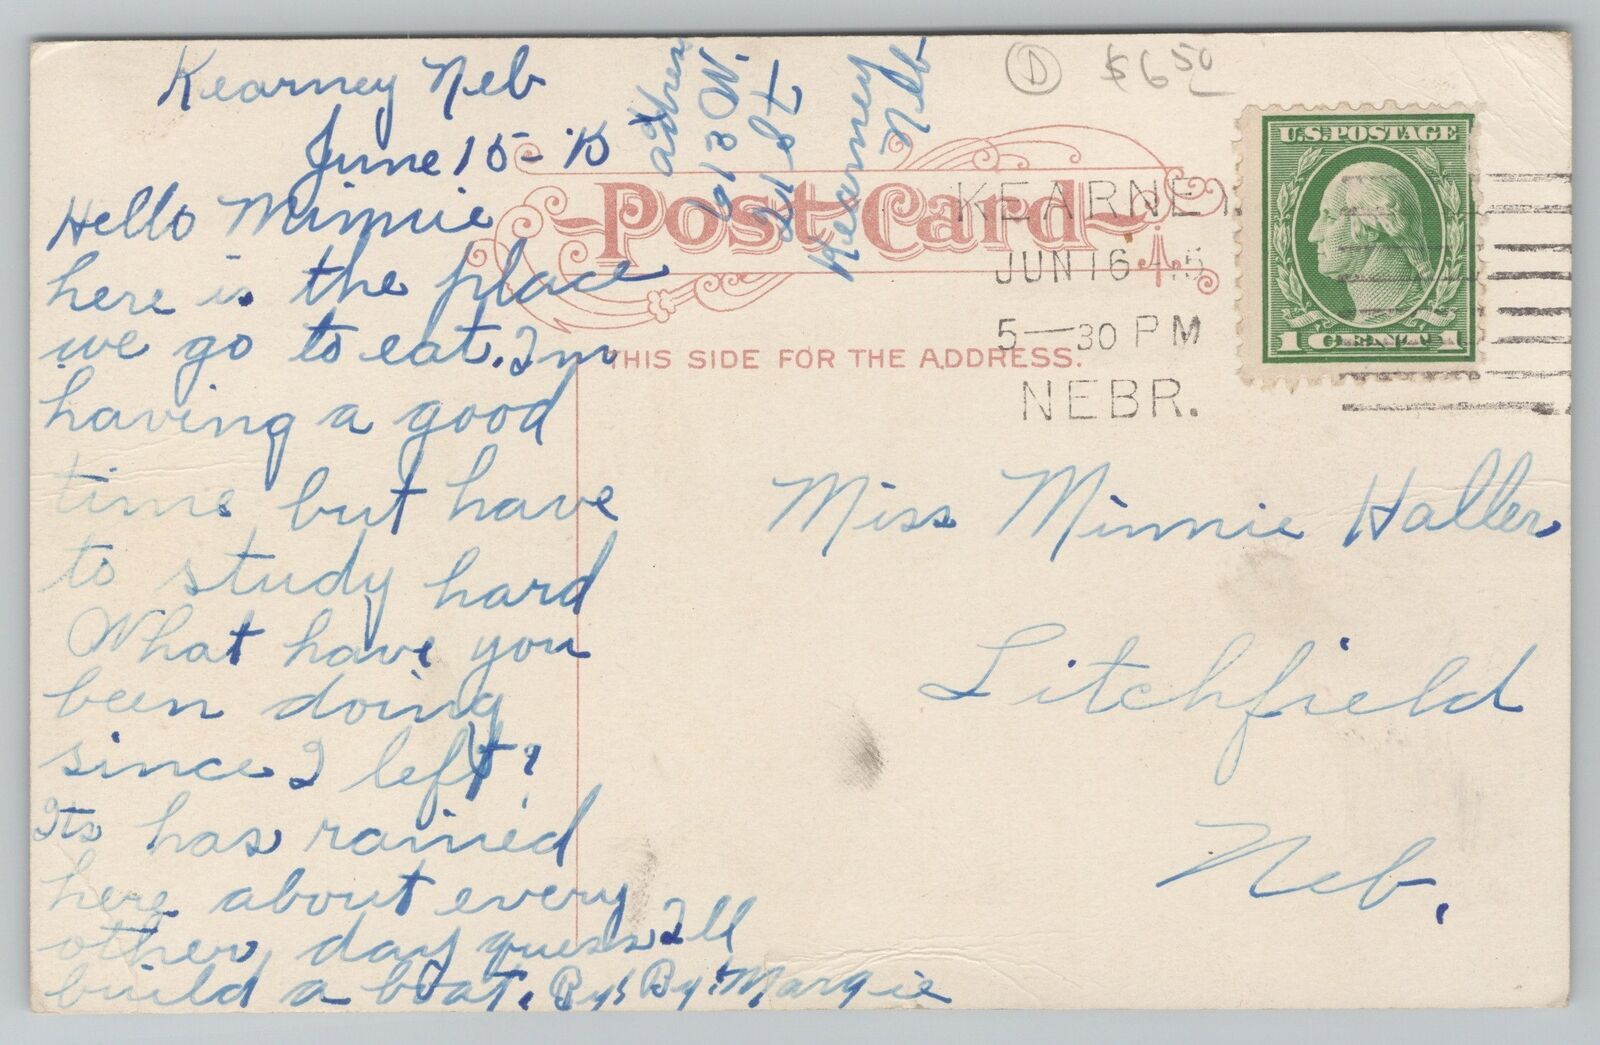 Kearney Neb
June 15-15
Hello Minnie
here is the place
we go to eat. Im
having a good
time but have
to study hard
What have you
been doing
since I left?
Its has rained
here about every
other day guess Ill
build a boat. By! By! Margie
address
Kearney
Neb
D $6 50
POST CARD
THIS SIDE FOR THE ADDRESS.
KEARNEY.
JUN 16
5—30 PM
NEBR.
U.S. POSTAGE
1 CENT 1
Miss Minnie Haller
Litchfield
Neb.